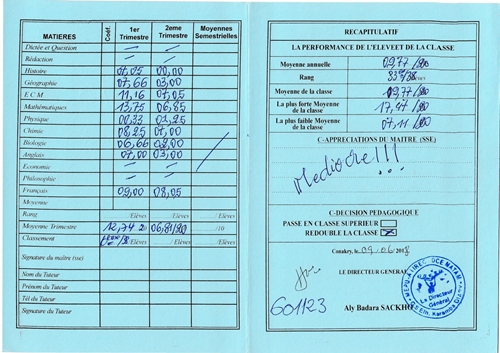 MATIERES Coéf. 1er Trimestre 2eme Trimestre Moyennes Semestrielles
Dictée et Question
Rédaction
Histoire 07,05 00,00
Géographie 07,66 03,00
E C M 11,16 07,05
Mathématiques 13,75 06,85
Physique 00,33 01,25
Chimie 08,25 07,00
Biologie 06,66 02,00
Anglais 07,00 03,00
Economie
Philosophie
Français 09,00 08,05
Moyenne
Rang /Elèves /Elèves /Elèves
Moyenne Trimestre 12,74 06,81 /10
Classement /Elèves /Elèves
Signature du maître (sse)
Nom du Tuteur
Prénom du Tuteur
Tél du Tuteur
Signature du Tuteur
RECAPITULATIF
LA PERFORMANCE DE L'ELEVE ET DE LA CLASSE
Moyenne annuelle 09,77
Rang 33e/38
Moyenne de la classe 09,77
La plus forte Moyenne de la classe 17,47
La plus faible Moyenne de la classe 07,11
C-APPRECIATIONS DU MAITRE (SSE)
Mediocre!!!
C-DECISION PEDAGOGIQUE
PASSE EN CLASSE SUPERIEUR
REDOUBLE LA CLASSE
Conakry, le 09.06 2018
LE DIRECTEUR GENERAL
601123
Aly Badara SACKHO
Le Directeur Général